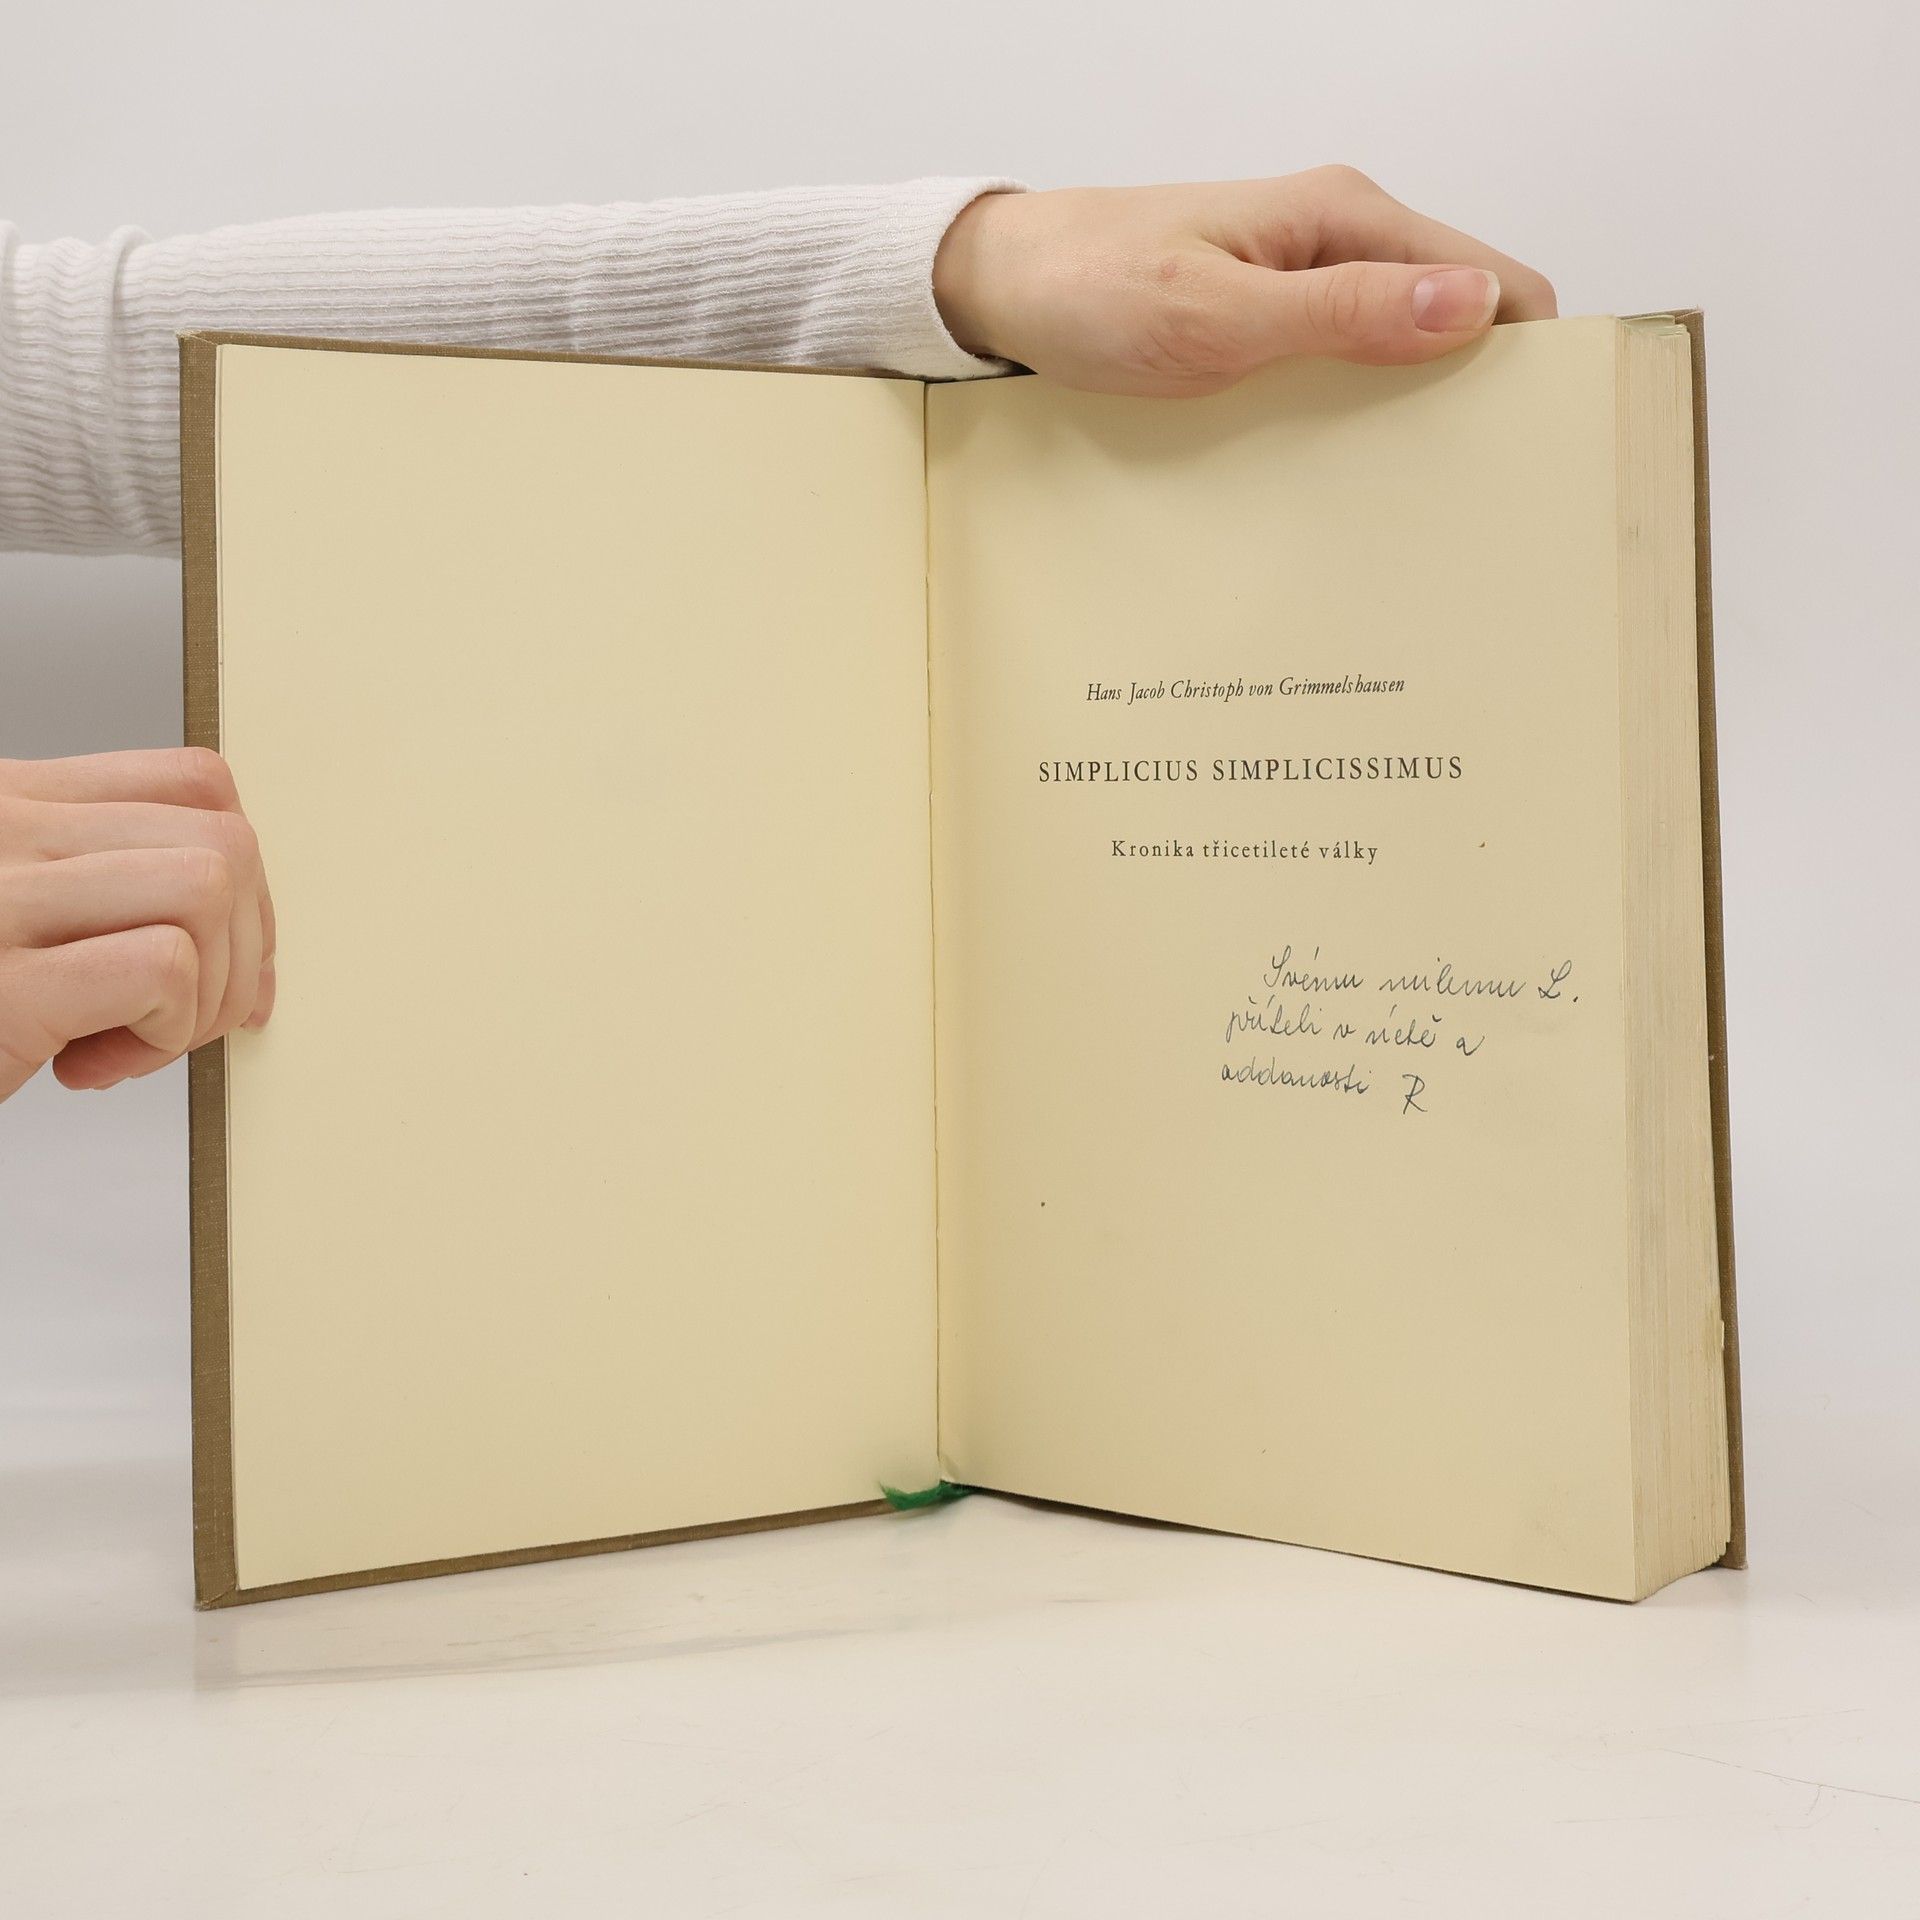 Hans Jacob Christoph von Grimmelshausen
SIMPLICIUS SIMPLICISSIMUS
Kronika třicetileté války
Svému milemu L.
příteli v úctě a
oddanosti R